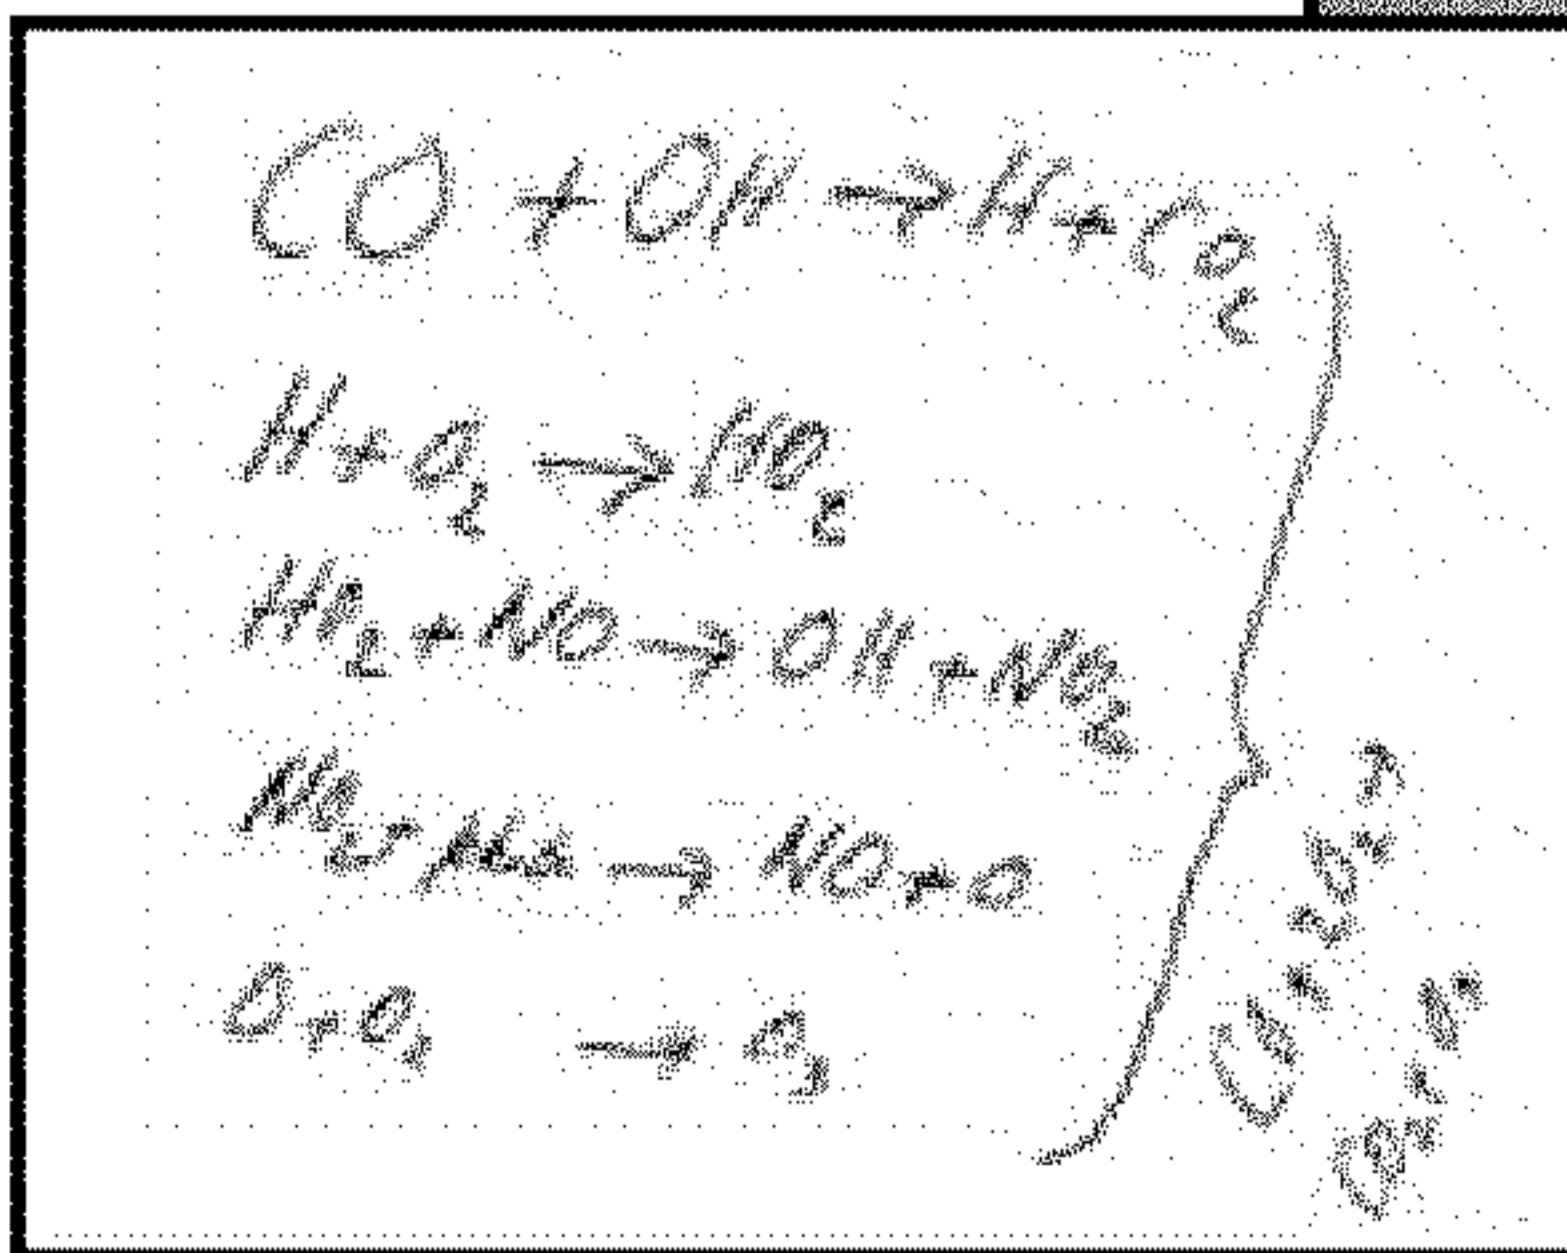 CO + OH → H + CO₂
H + O₂ → HO₂
HO₂ + NO → OH + NO₂
NO₂ + → NO + O
O + O₂ → O₃
CO + 2O₂ →
CO₂ + O₃